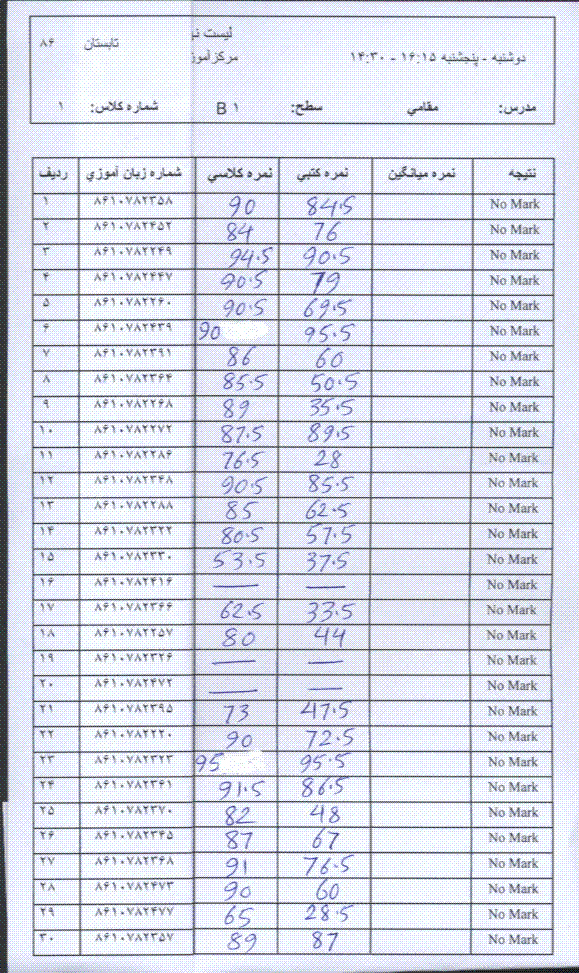 لیست
تابستان ۸۶
دوشنبه - پنجشنبه ۱۶:۱۵ - ۱۴:۳۰
مرکز آموز
مدرس: مقامي سطح: B ۱ شماره کلاس: ۱
رديف شماره زبان آموزي نمره کلاسي نمره کتبي نمره ميانگين نتيجه
۱ ۸۶۱۰۷۸۲۳۵۸ 90 84.5 No Mark
۲ ۸۶۱۰۷۸۲۴۵۲ 84 76 No Mark
۳ ۸۶۱۰۷۸۲۲۴۹ 94.5 90.5 No Mark
۴ ۸۶۱۰۷۸۲۴۴۷ 90.5 79 No Mark
۵ ۸۶۱۰۷۸۲۲۶۰ 90.5 69.5 No Mark
۶ ۸۶۱۰۷۸۲۴۳۹ 90 95.5 No Mark
۷ ۸۶۱۰۷۸۲۳۹۱ 86 60 No Mark
۸ ۸۶۱۰۷۸۲۳۶۴ 85.5 50.5 No Mark
۹ ۸۶۱۰۷۸۲۲۶۸ 89 35.5 No Mark
۱۰ ۸۶۱۰۷۸۲۲۷۲ 87.5 89.5 No Mark
۱۱ ۸۶۱۰۷۸۲۲۸۶ 76.5 28 No Mark
۱۲ ۸۶۱۰۷۸۲۳۴۸ 90.5 85.5 No Mark
۱۳ ۸۶۱۰۷۸۲۲۸۸ 85 62.5 No Mark
۱۴ ۸۶۱۰۷۸۲۳۲۲ 80.5 57.5 No Mark
۱۵ ۸۶۱۰۷۸۲۳۳۰ 53.5 37.5 No Mark
۱۶ ۸۶۱۰۷۸۲۴۱۶ — — No Mark
۱۷ ۸۶۱۰۷۸۲۳۶۶ 62.5 33.5 No Mark
۱۸ ۸۶۱۰۷۸۲۲۵۷ 80 44 No Mark
۱۹ ۸۶۱۰۷۸۲۳۲۶ — — No Mark
۲۰ ۸۶۱۰۷۸۲۴۷۲ — — No Mark
۲۱ ۸۶۱۰۷۸۲۳۹۵ 73 47.5 No Mark
۲۲ ۸۶۱۰۷۸۲۲۲۰ 90 72.5 No Mark
۲۳ ۸۶۱۰۷۸۲۳۲۳ 95 95.5 No Mark
۲۴ ۸۶۱۰۷۸۲۳۶۱ 91.5 86.5 No Mark
۲۵ ۸۶۱۰۷۸۲۳۷۰ 82 48 No Mark
۲۶ ۸۶۱۰۷۸۲۳۴۵ 87 67 No Mark
۲۷ ۸۶۱۰۷۸۲۳۶۸ 91 76.5 No Mark
۲۸ ۸۶۱۰۷۸۲۴۷۳ 90 60 No Mark
۲۹ ۸۶۱۰۷۸۲۴۷۷ 65 28.5 No Mark
۳۰ ۸۶۱۰۷۸۲۳۵۷ 89 87 No Mark